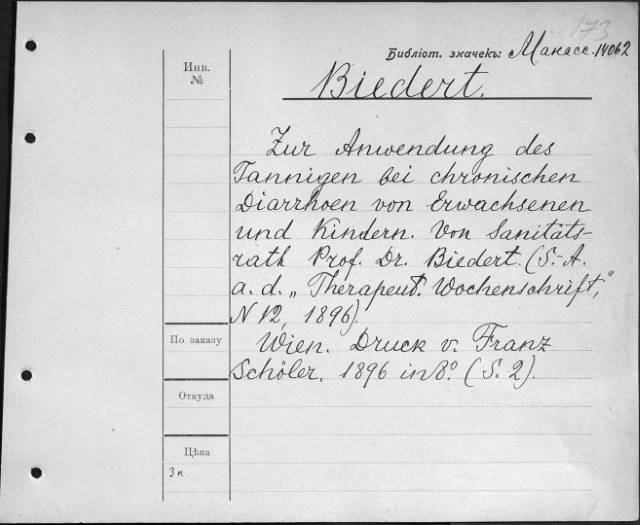 173
Библіот. значекъ: Макасс. 14062
Инв.
№
Biedert.
Zur Anwendung des
Tannigen bei chronischen
Diarrhoen von Erwachsenen
und Kindern. Von Sanitäts-
rath Prof. Dr. Biedert. (S.-A.
a. d. „Therapeut. Wochenschrift,"
N 12, 1896).
По заказу
Wien. Druck v. Franz
Schöler. 1896 in 8º. (S. 2).
Откуда
Цѣна
3 к